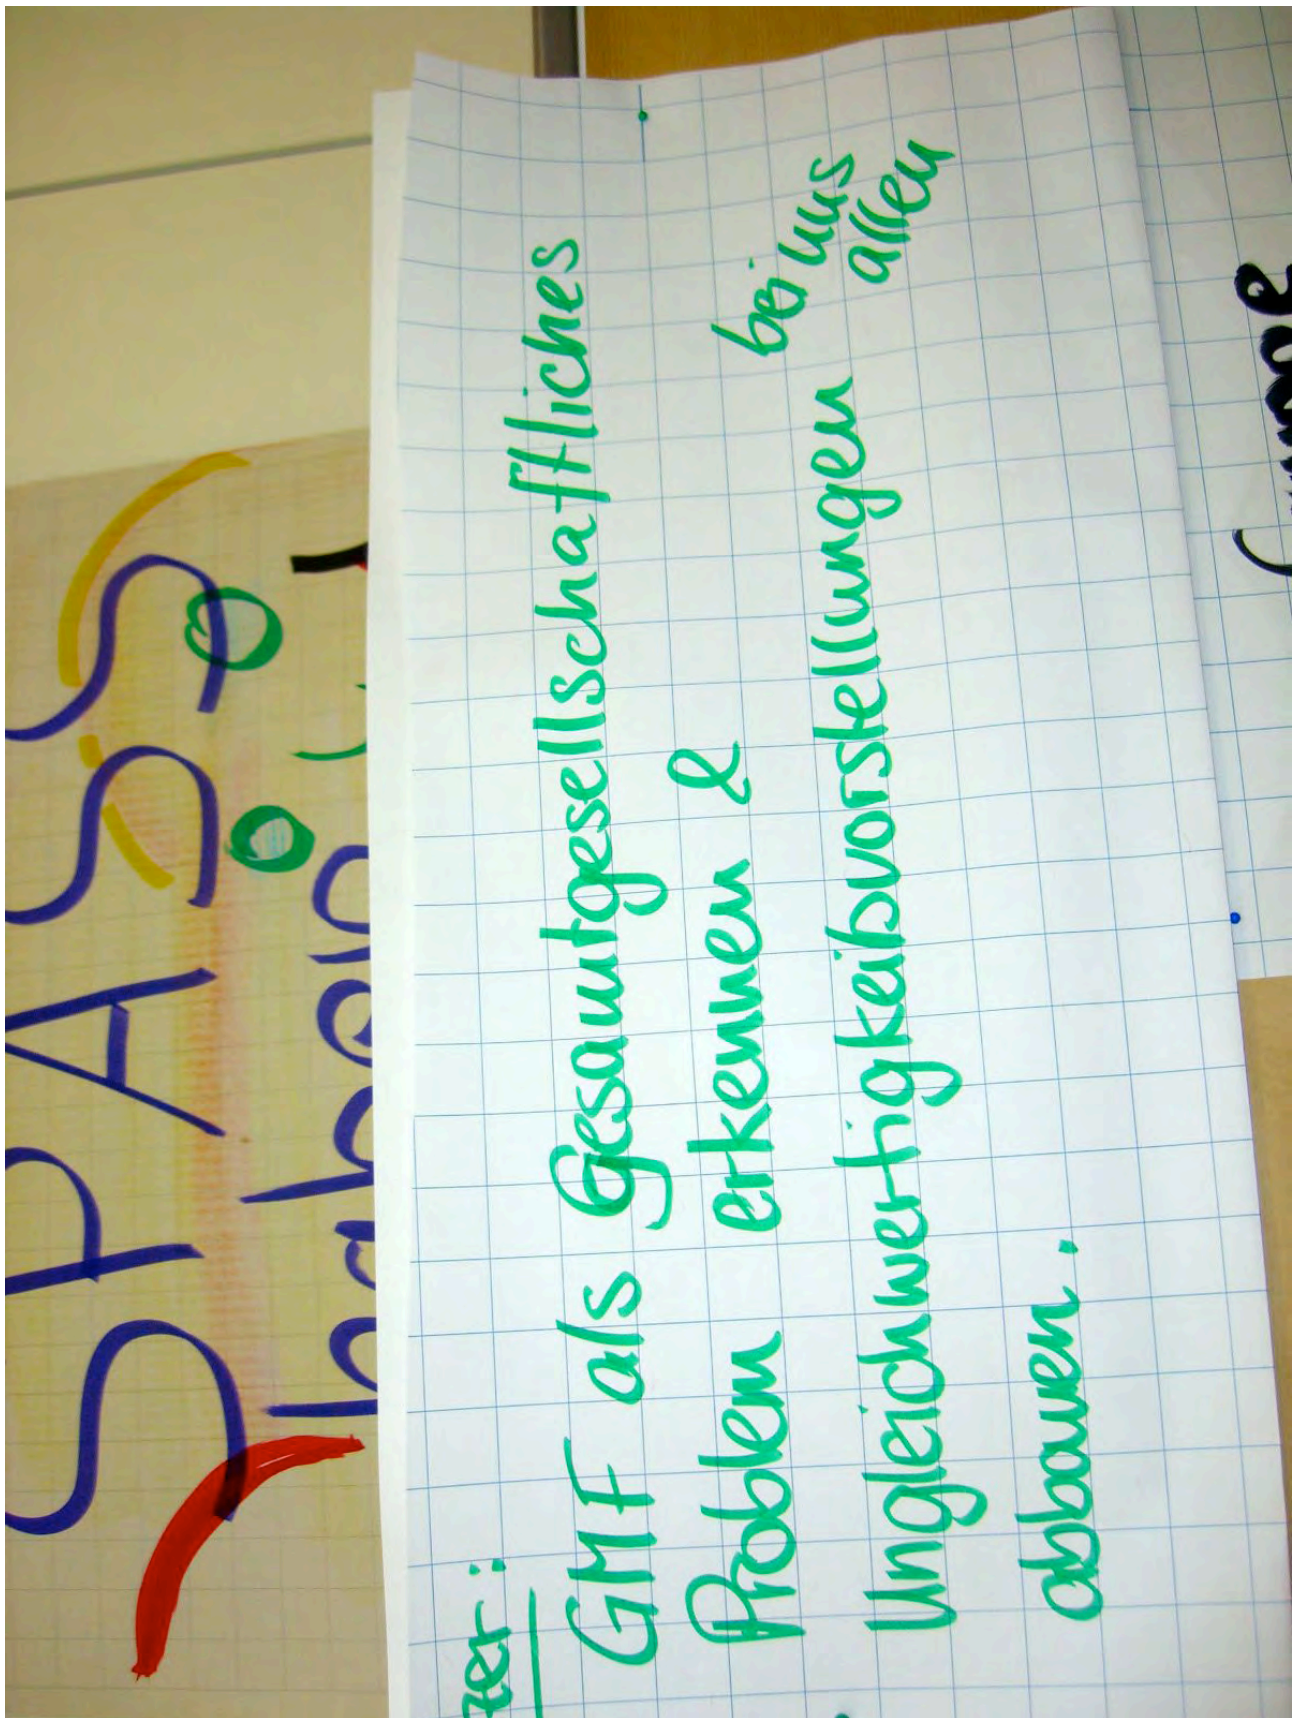 SPASS
haben
GMF als Gesamtgesellschaftliches
Problem erkennen &
Ungleichwertigkeitsvorstellungen bei uns allen
abbauen.